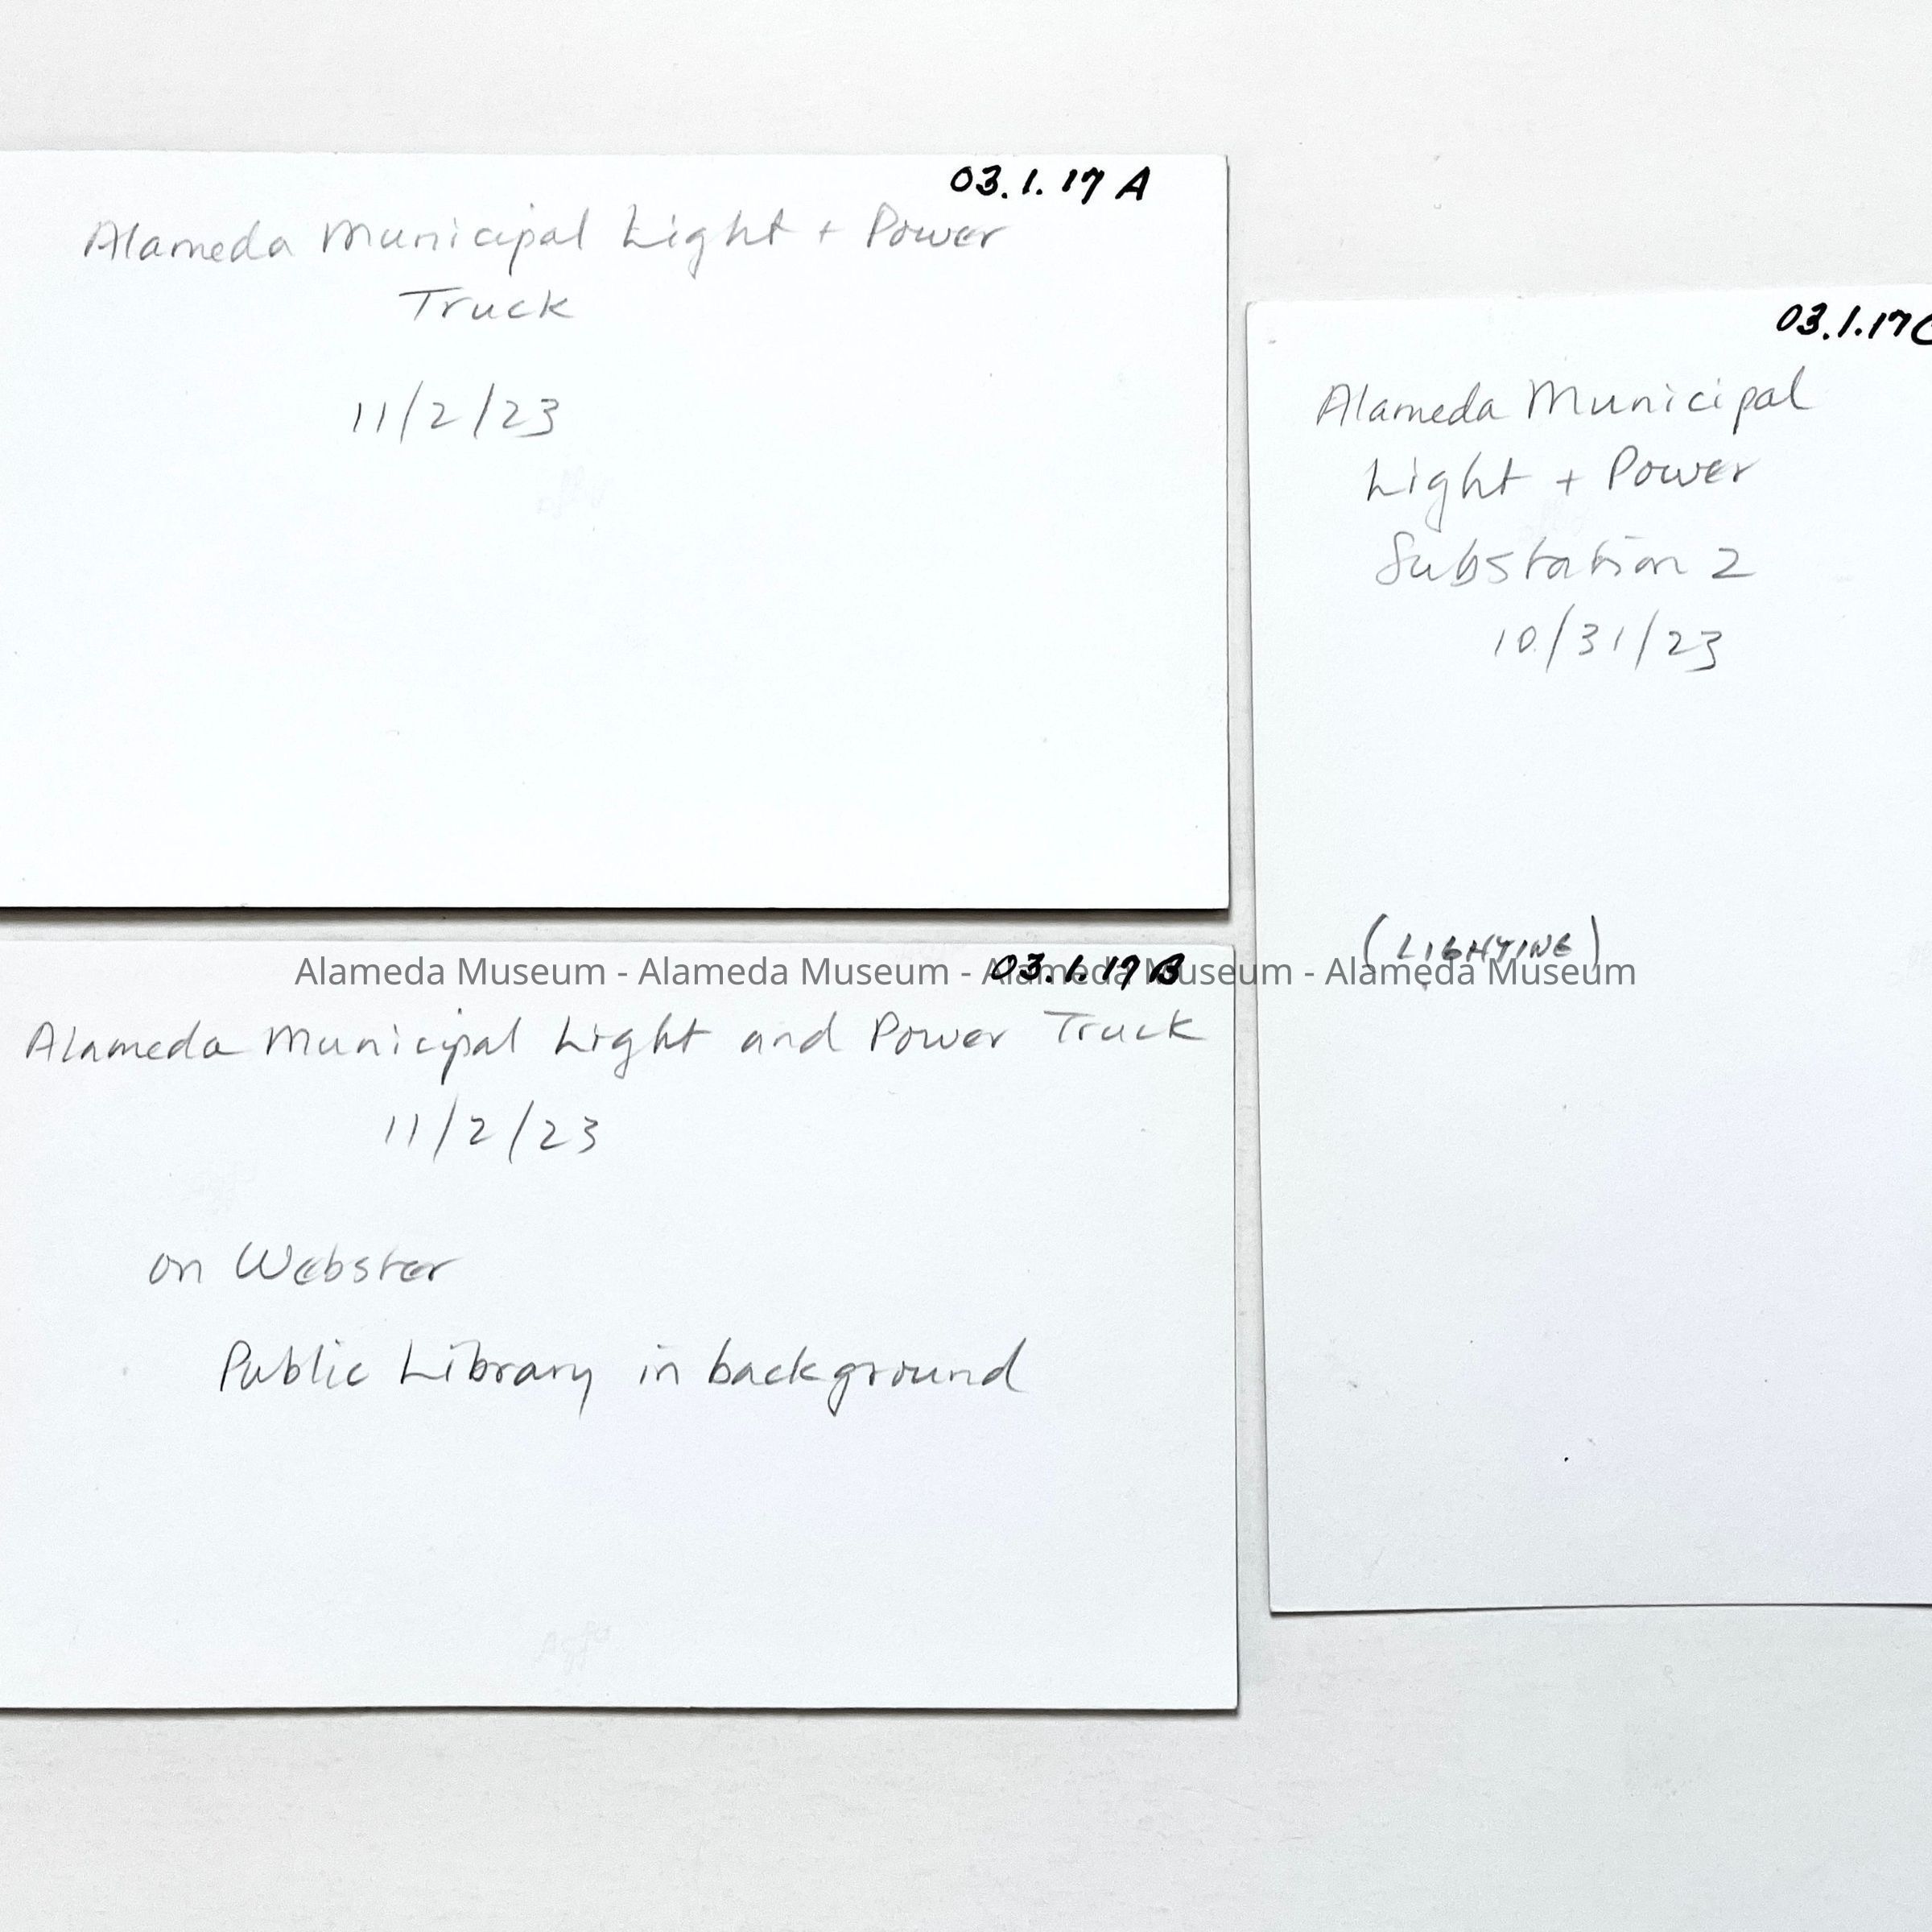 03.1.17 A
Alameda Municipal Light + Power
Truck
11/2/23
03.1.17 B
Alameda Municipal Light and Power Truck
11/2/23
on Webster
Public Library in background
03.1.17C
Alameda Municipal
Light + Power
Substation 2
10/31/23
(LIGHTING)
Alameda Museum - Alameda Museum - Alameda Museum - Alameda Museum